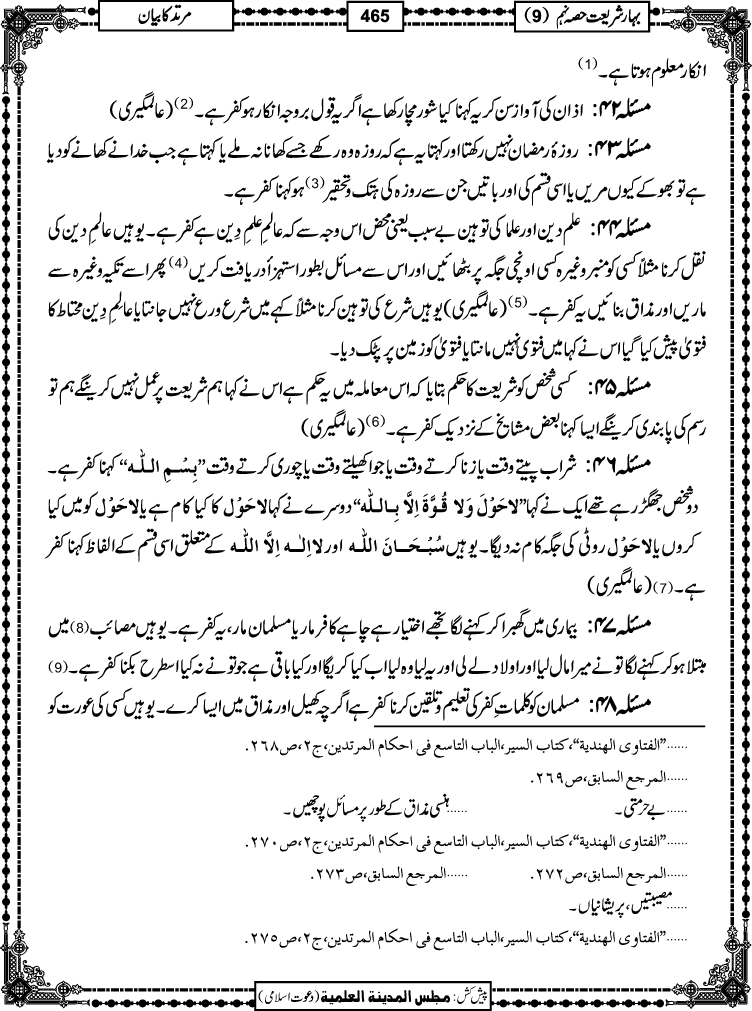 بہارِ شریعت حصہ نہم (9)
465
مرتد کا بیان
انکار معلوم ہوتا ہے۔ (1)
مسئلہ ۴۲: اذان کی آواز سن کر یہ کہنا کیا شور مچا رکھا ہے اگر یہ قول بروجہ انکار ہو کفر ہے۔ (2) (عالمگیری)
مسئلہ ۴۳: روزۂ رمضان نہیں رکھتا اور کہتا یہ ہے کہ روزہ وہ رکھے جسے کھانا نہ ملے یا کہتا ہے جب خدا نے کھانے کو دیا
ہے تو بھوکے کیوں مریں یا اسی قسم کی اور باتیں جن سے روزہ کی ہتک و تحقیر (3) ہو کہنا کفر ہے۔
مسئلہ ۴۴: علم دین اور علما کی توہین بے سبب یعنی محض اس وجہ سے کہ عالمِ علمِ دِین ہے کفر ہے۔ یوہیں عالمِ دین کی
نقل کرنا مثلاً کسی کو منبر وغیرہ کسی اونچی جگہ پر بٹھائیں اور اس سے مسائل بطور استہزأ دریافت کریں (4) پھر اسے تکیہ وغیرہ سے
ماریں اور مذاق بنائیں یہ کفر ہے۔ (5) (عالمگیری) یوہیں شرع کی توہین کرنا مثلاً کہے میں شرع ورع نہیں جانتا یا عالمِ دِین محتاط کا
فتویٰ پیش کیا گیا اس نے کہا میں فتویٰ نہیں مانتا یا فتویٰ کو زمین پر پٹک دیا۔
مسئلہ ۴۵: کسی شخص کو شریعت کا حکم بتایا کہ اس معاملہ میں یہ حکم ہے اس نے کہا ہم شریعت پر عمل نہیں کرینگے ہم تو
رسم کی پابندی کرینگے ایسا کہنا بعض مشایخ کے نزدیک کفر ہے۔ (6) (عالمگیری)
مسئلہ ۴۶: شراب پیتے وقت یا زنا کرتے وقت یا جوا کھیلتے وقت یا چوری کرتے وقت ’’بِسْمِ اللّٰہ‘‘ کہنا کفر ہے۔
دو شخص جھگڑ رہے تھے ایک نے کہا ’’لاحَوْلَ وَلا قُوَّةَ اِلَّا بِاللّٰہ‘‘ دوسرے نے کہا لاحَوْل کا کیا کام ہے یا لاحَوْل کو میں کیا
کروں یا لاحَوْل روٹی کی جگہ کام نہ دیگا۔ یوہیں سُبْحَانَ اللّٰہ اور لااِلٰہ اِلَّا اللّٰہ کے متعلق اسی قسم کے الفاظ کہنا کفر
ہے۔ (7) (عالمگیری)
مسئلہ ۴۷: بیماری میں گھبرا کر کہنے لگا تجھے اختیار ہے چاہے کافر مار یا مسلمان مار، یہ کفر ہے۔ یوہیں مصائب (8) میں
مبتلا ہو کر کہنے لگا تو نے میرا مال لیا اور اولاد لے لی اور یہ لیا وہ لیا اب کیا کریگا اور کیا باقی ہے جو تو نے نہ کیا اسطرح بکنا کفر ہے۔ (9)
مسئلہ ۴۸: مسلمان کو کلماتِ کفر کی تعلیم و تلقین کرنا کفر ہے اگرچہ کھیل اور مذاق میں ایسا کرے۔ یوہیں کسی کی عورت کو
......’’الفتاوی الھندیة‘‘، کتاب السیر، الباب التاسع فی احکام المرتدین، ج۲، ص۲۶۸.
......المرجع السابق، ص۲۶۹.
......بے حرمتی۔ ......ہنسی مذاق کے طور پر مسائل پوچھیں۔
......’’الفتاوی الھندیة‘‘، کتاب السیر، الباب التاسع فی احکام المرتدین، ج۲، ص۲۷۰.
......المرجع السابق، ص۲۷۲. ......المرجع السابق، ص۲۷۳.
......مصیبتیں، پریشانیاں۔
......’’الفتاوی الھندیة‘‘، کتاب السیر، الباب التاسع فی احکام المرتدین، ج۲، ص۲۷۵.
پیش کش: مجلس المدینة العلمیة (دعوت اسلامی)